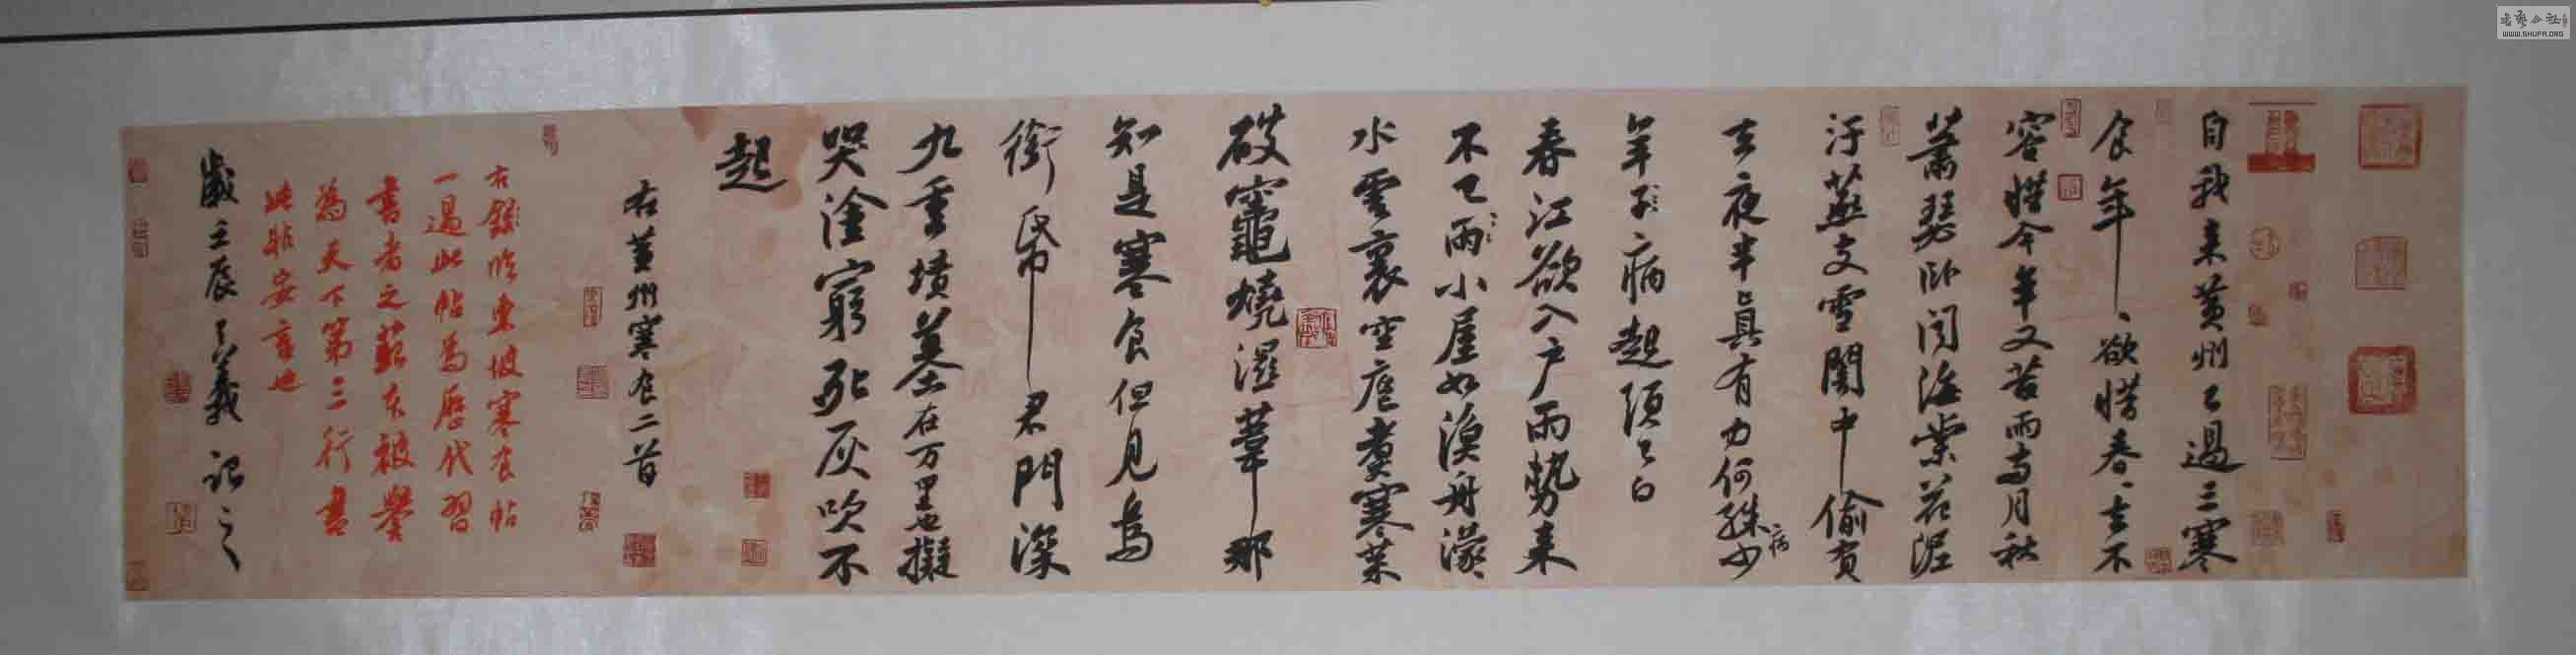 自我来黄州已過三寒
食年〻欲惜春〻去不
容惜今年又苦雨两月秋
蕭瑟卧聞海棠花泥
汙燕支雪闇中偷負
去夜半真有力何殊少
病
年子病起頭已白
春江欲入户雨勢来
不已雨小屋如漁舟濛〻
水雲裏空庖煮寒菜
破竈燒濕葦那
知是寒食但見烏
銜帋君門深
九重墳墓在万里也擬
哭塗窮死灰吹不
起
右黄州寒食二首
右錄臨東坡寒食帖
一過此帖為歷代習
書者之
為天下第三行書
此非妄言也
歲壬辰
記之
WWW.SHUFA.ORG